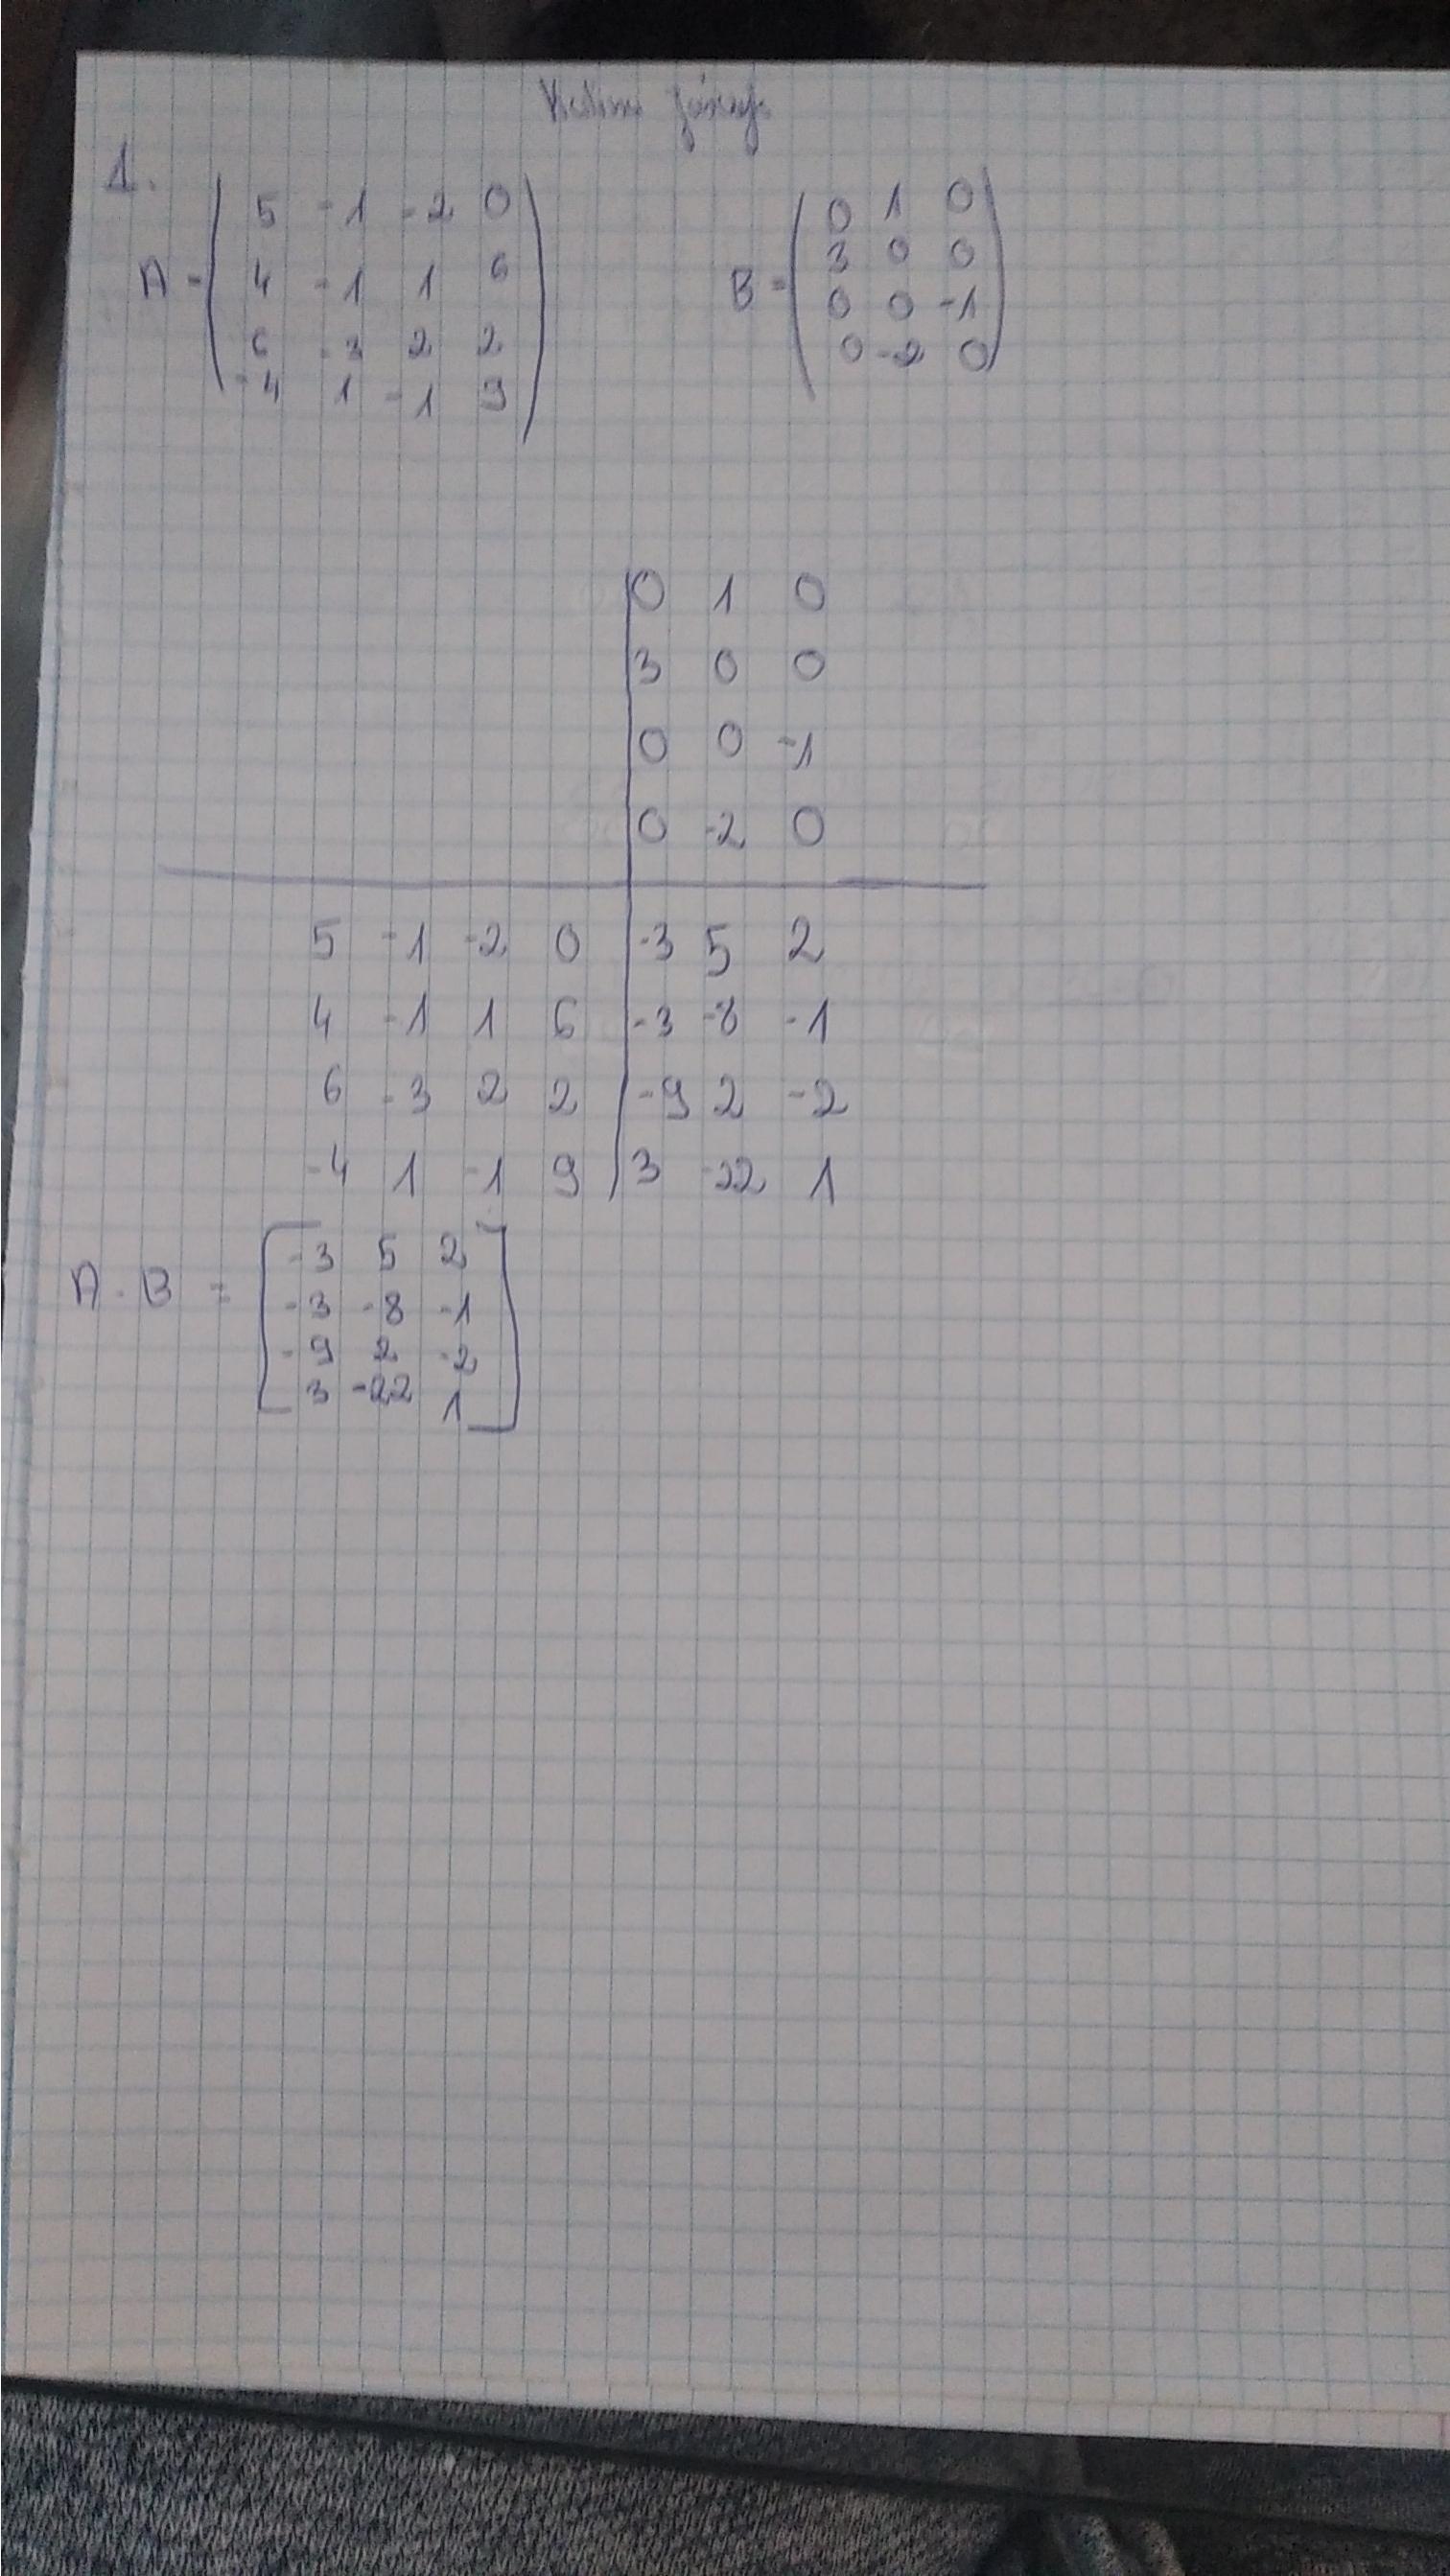 1.
A = ( 5 -1 -2 0
4 -1 1 6
6 -3 2 2
-4 1 -1 9 )
B = ( 0 1 0
3 0 0
0 0 -1
0 -2 0 )
0 1 0
3 0 0
0 0 -1
0 -2 0
5 -1 -2 0 | -3 5 2
4 -1 1 6 | -3 -8 -1
6 -3 2 2 | -9 2 -2
-4 1 -1 9 | 3 -22 1
A · B = [ -3 5 2
-3 -8 -1
-9 2 -2
3 -22 1 ]